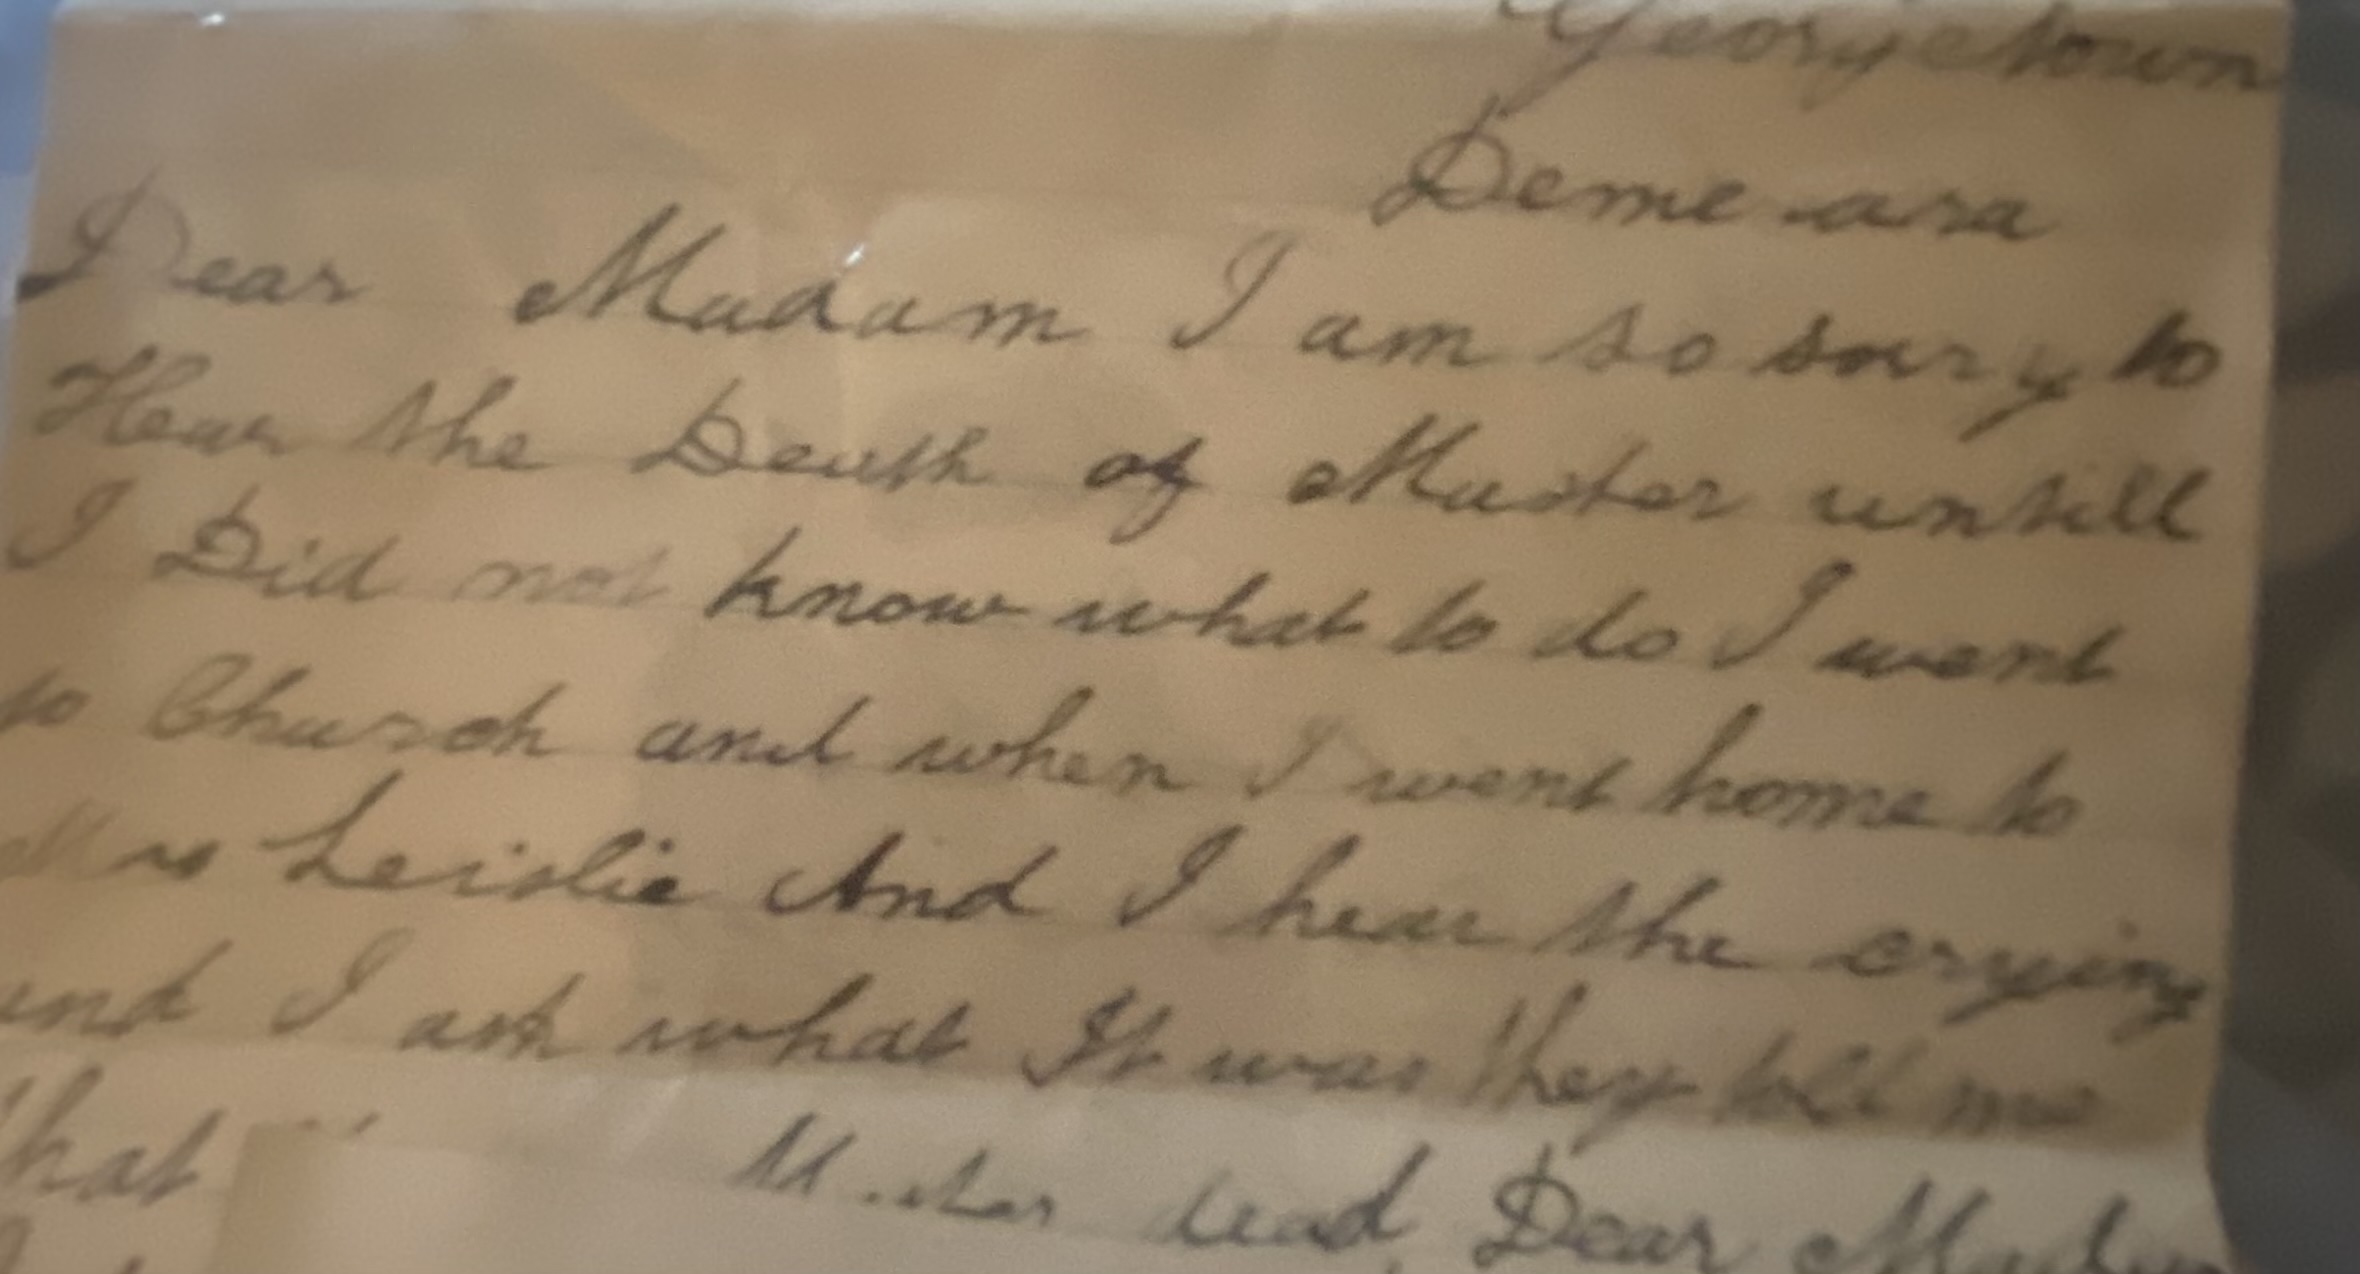 Georgetown
Demeara
Dear Madam I am so sorry to
Hear the Death of Master untill
I Did not know what to do I went
to Church and when I went home to
Mrs Leislie And I hear the crying
and I ask what It was they told me
that Master dead, Dear Madam